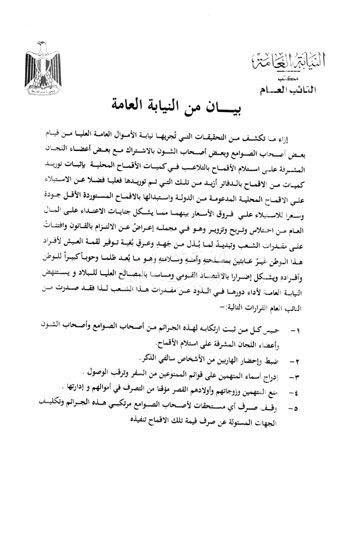 النيابة العامة
مكتب
النائب العام
بيان من النيابة العامة
إزاء ما تكشف من التحقيقات التي تُجريها نيابة الأموال العامة العليا من قيام
بعض أصحاب الصوامع وبعض أصحاب الشون بالاشتراك مع بعض أعضاء اللجان
المشرفة على استلام الأقماح بالتلاعب في كميات الأقماح المحلية بإثبات توريد
كميات من الأقماح بالدفاتر أزيد من تلك التي تم توريدها فعليا فضلا عن الاستيلاء
على الأقماح المحلية المدعومة من الدولة واستبدالها بالأقماح المستوردة الأقل جودة
وسعرا للاستيلاء على فروق الأسعار بينهما مما يشكل جنايات الاعتداء على المال
العام من اختلاس وتربح وتزوير وهو في مجمله إعراضٌ عن الالتزام بالقانون وافتئاتٌ
على مقدرات الشعب وتبديدٌ لما بُذل من جهدٍ وعرقٍ بُغية توفير لقمة العيش لأفراد
هذا الوطن غيرُ عابئين بمصلحته وأمنه وسلامته وهو ما يُعد ظلما وحوباً كبيراً للوطن
وأفراده ويشكل إضرارا بالاقتصاد القومي ومساسا بالمصالح العليا للبلاد و يستنهض
النيابة العامة لأداء دورها في الذود عن مقدرات هذا الشعب لذا فقد صدرت من
النائب العام القرارات التالية:-
١- حبس كل من ثبت ارتكابه لهذه الجرائم من أصحاب الصوامع وأصحاب الشون
وأعضاء اللجان المشرفة على استلام الأقماح.
٢- ضبط وإحضار الهاربين من الأشخاص سالفي الذكر.
٣- إدراج أسماء المتهمين على قوائم الممنوعين من السفر وترقب الوصول .
٤- منع المتهمين وزوجاتهم وأولادهم القصر مؤقتا من التصرف في أموالهم و إدارتها .
٥- وقف صرف أي مستحقات لأصحاب الصوامع مرتكبي هذه الجرائم وتكليف
الجهات المسئولة عن صرف قيمة تلك الاقماح تنفيذه